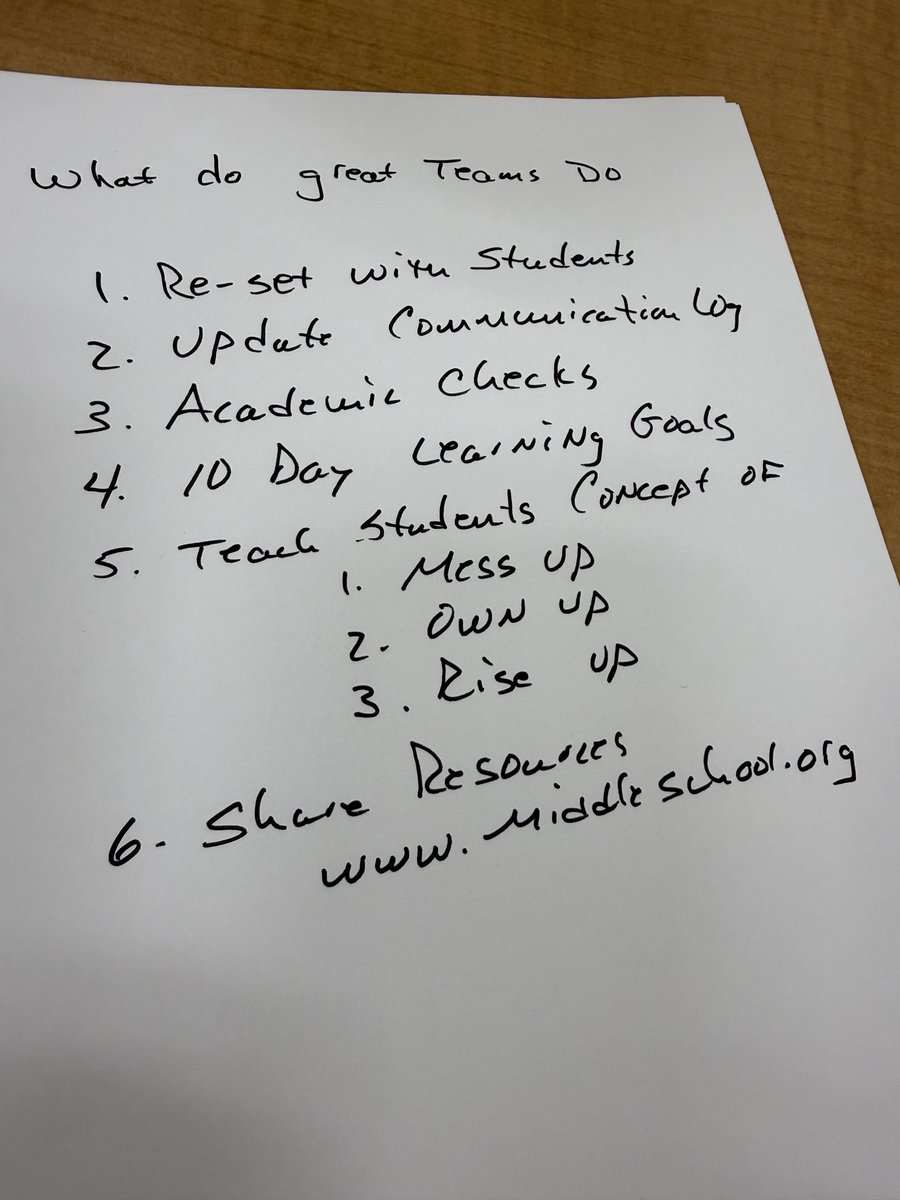 What do great Teams Do
1. Re-set with Students
2. Update Communication Log
3. Academic Checks
4. 10 Day Learning Goals
5. Teach Students Concept of
1. Mess up
2. Own up
3. Rise up
6. Share Resources
www.Middleschool.org